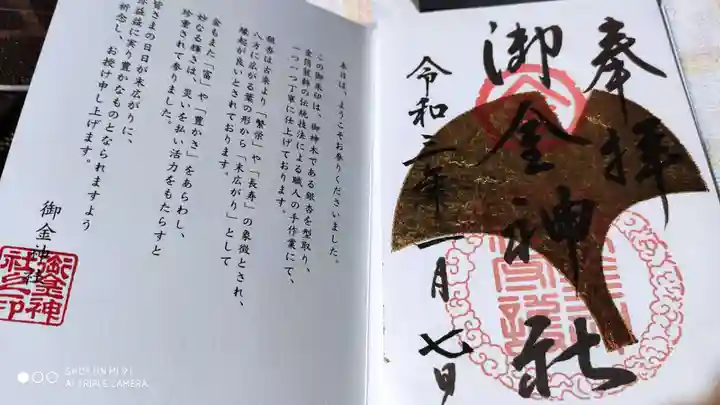 奉拝
御金神社
令和三年一月七日
本日は、ようこそお参りくださいました。
この御朱印は、御神木である銀杏を型取り、
金箔製粉の伝統技法による職人の手作業にて、
一つ一つ丁寧に仕上げております。
銀杏は古来より「繁栄」や「長寿」の象徴とされ、
八方に広がる葉の形から「末広がり」として
縁起が良いとされております。
金もまた「富」や「豊かさ」をあらわし、
妙なる輝きは、災いを払い活力をもたらすと
珍重されて参りました。
皆さまの日日が末広がりに、
弥益益に実り豊かなものとなられますよう
祈念し、お授け申し上げます。
御金神社
御金神社之印
SHOT ON MI 9T
AI TRIPLE CAMERA